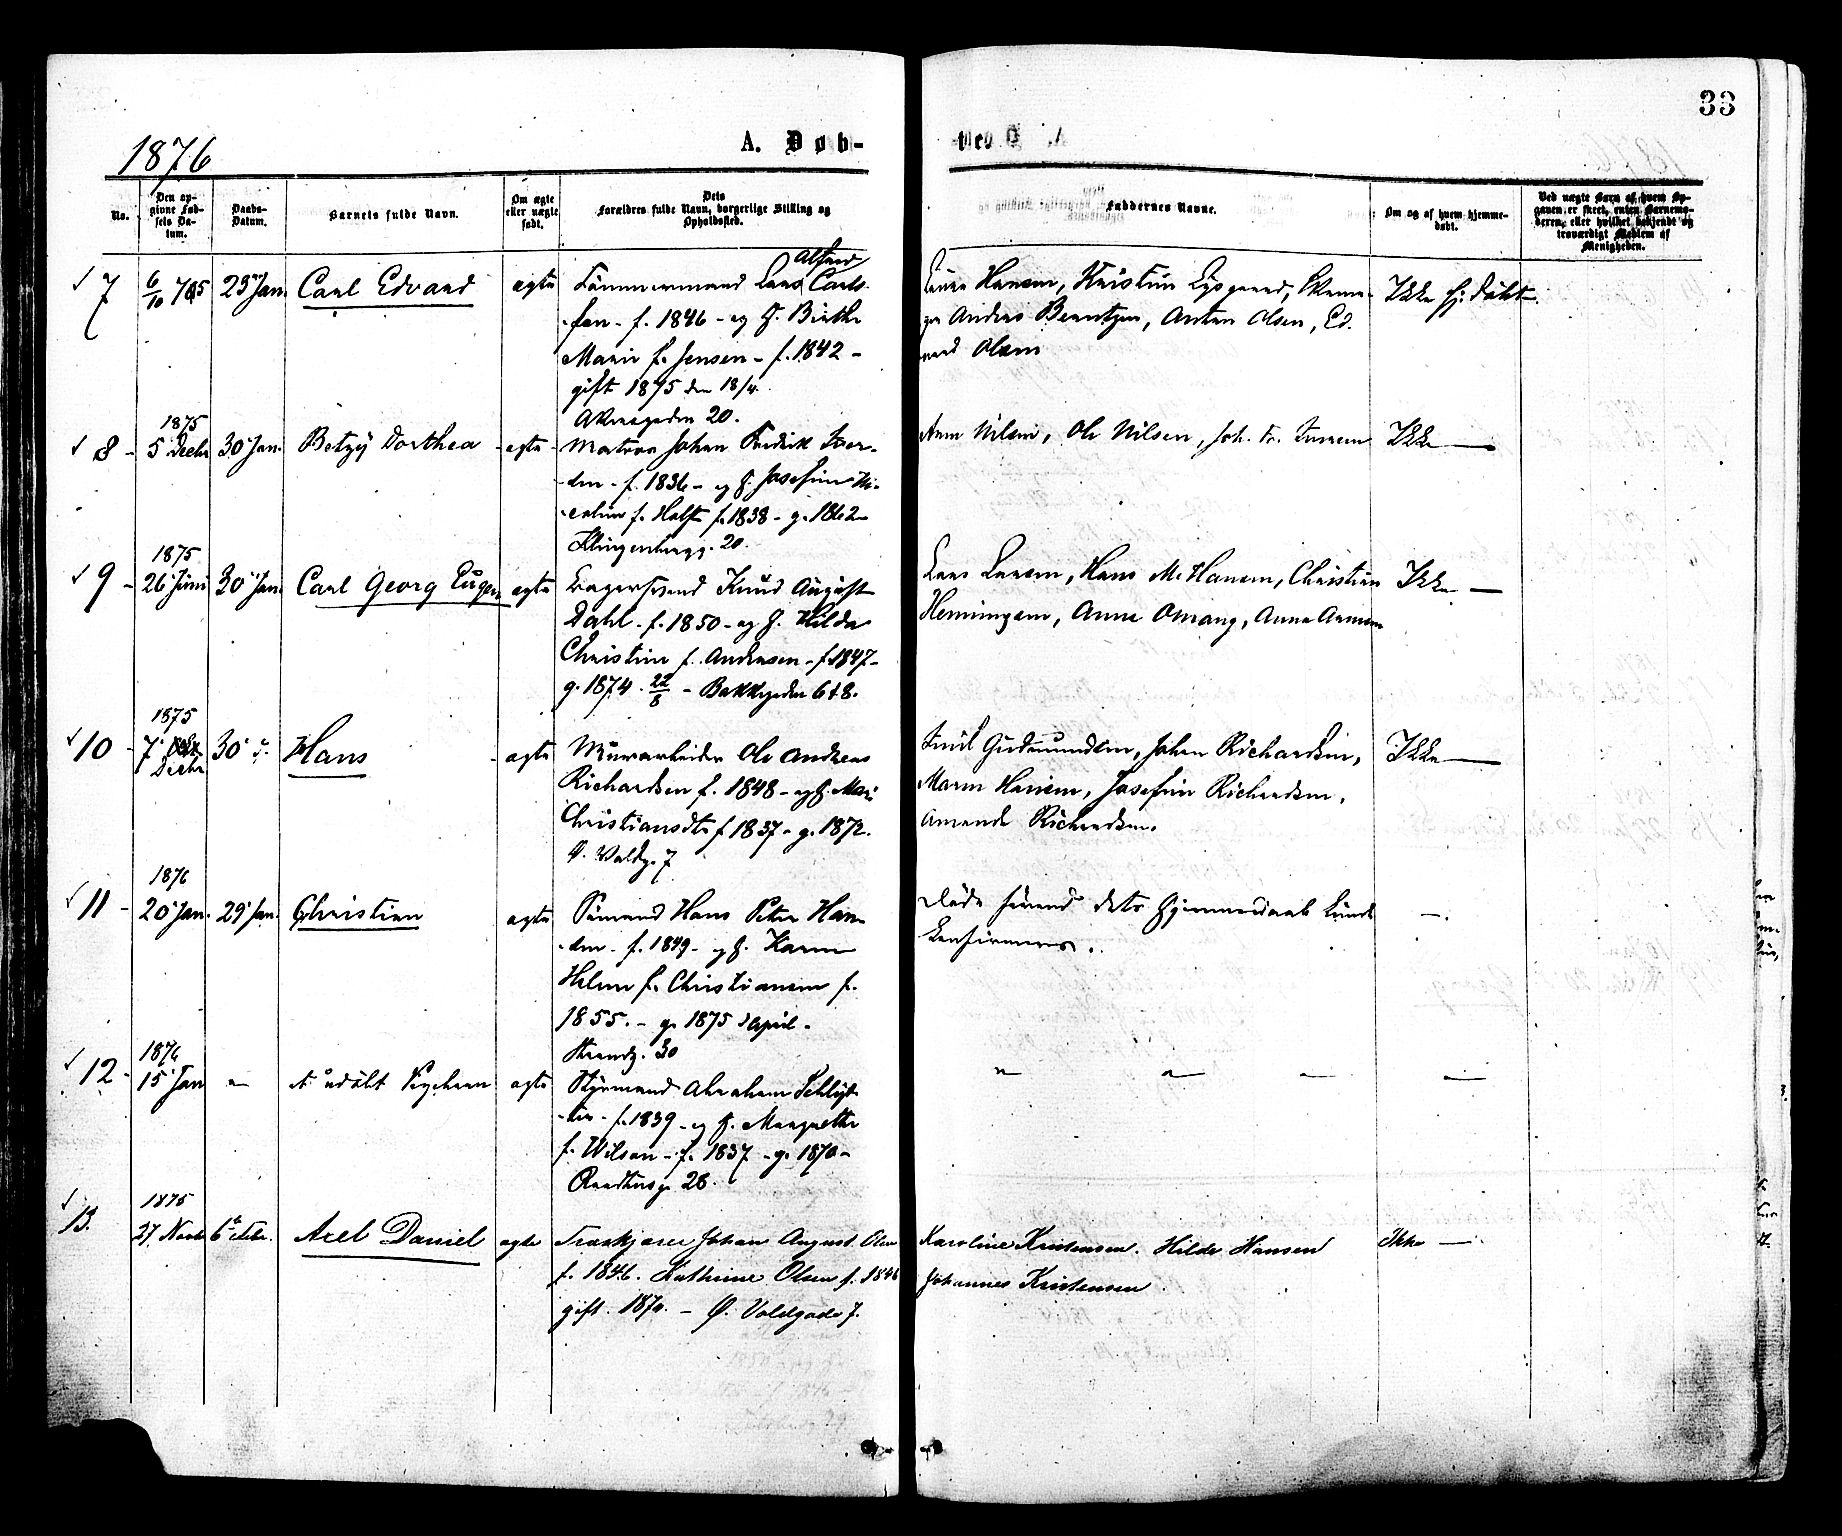 33
1876
A. Døb-
-te.
No.
Den op-
givne Fød-
sels Da-
tum.
Daabs-
Datum.
Barnets fulde Navn.
Om ægte
eller uægte
født.
Dets
Forældres fulde Navn, borgerlige Stilling og
Opholdssted.
Faddernes Navne.
Om og af hvem hjemme-
døbt.
Ved uægte Børn af hvem Op-
gaven er skeet, enten Barnemo-
deren, eller hvilket bekjendt og
troværdigt Medlem af
Menigheden.
7
6/10 75
29 Jan.
Carl Edvard
ægte
Tømmermand Lars Carls-
sen - f. 1846 - og H. Birthe
Marie f. Jensen - f. 1842 -
gift 1875 den 18/4.
Akersgaden 20.
Hansen, Kristine Lysgaard,
Andreas Berntzen, Anton Olsen, Ed-
vard Olsen
Ikke hj. døbt
8 -
1875
5 Decbr
30 Jan.
Betzy Dorthea
- ægte -
Matros Johan Fredrik Iver-
sen - f. 1836 - og H. Josefine Ni-
coline f. Holst f. 1838 - g. 1862
Klingenbergg. 20.
Nilsen, Ole Nilsen, Joh. Fr.
Ikke
9 -
1875
26 Juni
30 Jan.
Carl Georg Eugen
ægte
Bagersvend Knud August
Dahl - f. 1850 - og H. Hilda
Christine f. Andersen - f. 1847 -
g. 1874. 22/8 - Bakkegaden 6 & 8.
Lars Larsen, Hans M. Hansen, Christian
Henningsen, Anna Omang, Anna
Ikke -
10 -
1875
7
Decbr
30 d.
Hans
- ægte
Murarbeider Ole Andreas
Richardsen f. 1848 - og H. Mari
Christiansdtr f 1837 - g. 1872.
Ø. Voldg. 7
Emil Gudmundsen, Johan Richardsen,
Maren Hansen, Josefine Richardsen,
Amanda Richardsen.
Ikke
11 -
1876
20 Jan.
29 Jan.
Christian
ægte
Sømand Hans Peter Han-
sen - f. 1849 - og H. Karen
Helene f. Christiansen f.
1855. - g. 1875 April -
Strandg. 30
Døde førend dets Hjemmedaab kunde
konfirmeres.
-
12 -
1876
15 Jan
-
et udøbt Pigebarn
ægte
Styrmand Abraham Schlyt-
ter - f. 1839 - og H. Margrethe
f. Wilson - f. 1837 - g. 1870 -
Raadhusg. 28.
13.
1875
27. Novbr
6te Febr.
Axel Daniel
ægte
Johan August Olsen
f. 1846. Kathrine Olsen f. 1846
gift. 1870. - Ø. Voldgade 7.
Karoline Kristensen. Hilda Hansen
Johannes Kristensen
Ikke -